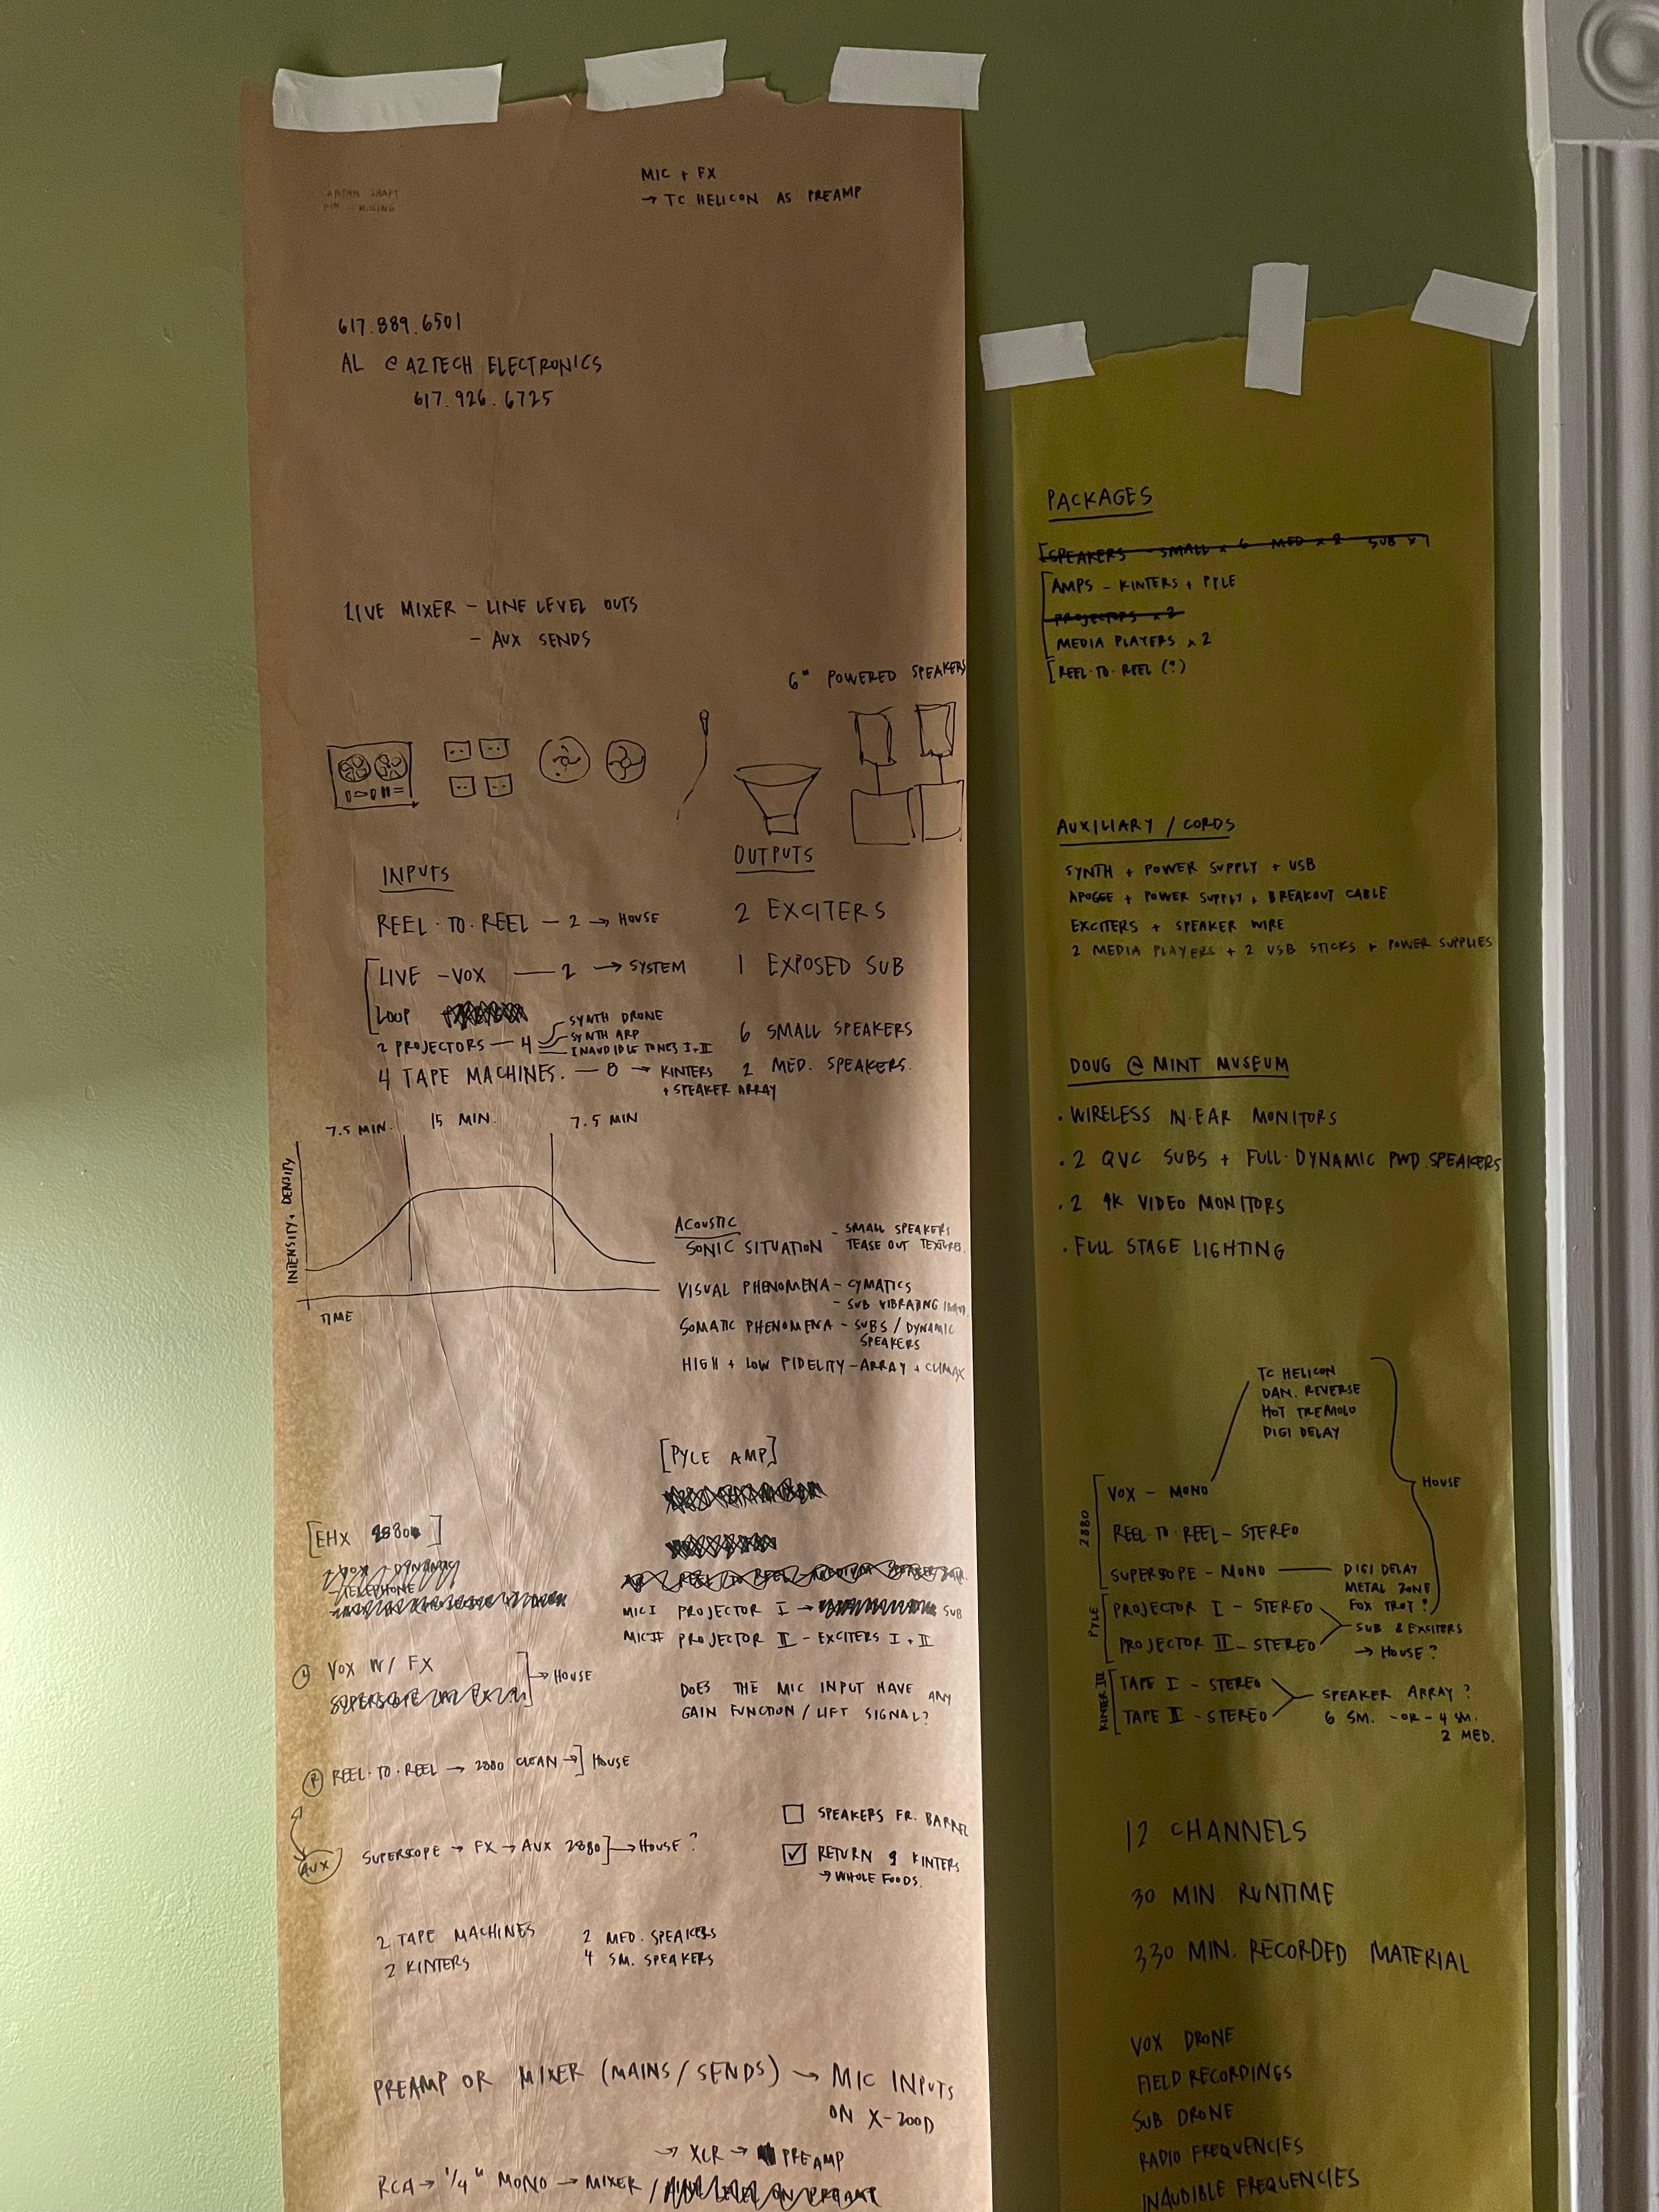 MIC + FX
→ TC HELICON AS PREAMP
617.889.6501
AL @ AZTECH ELECTRONICS
617.926.6725
LIVE MIXER - LINE LEVEL OUTS
- AUX SENDS
6" POWERED SPEAKERS
INPUTS
REEL·TO·REEL - 2 → HOUSE
LIVE - VOX - 2 → SYSTEM
LOOP
2 PROJECTORS - 4
SYNTH DRONE
SYNTH ARP
INAUDIBLE TONES I + II
4 TAPE MACHINES. - 8 → KINTERS
+ SPEAKER ARRAY
OUTPUTS
2 EXCITERS
1 EXPOSED SUB
6 SMALL SPEAKERS
2 MED. SPEAKERS.
7.5 MIN. 15 MIN. 7.5 MIN
INTENSITY, DENSITY
TIME
ACOUSTIC
SONIC SITUATION - SMALL SPEAKERS
TEASE OUT TEXTURES.
VISUAL PHENOMENA - CYMATICS
- SUB VIBRATING
SOMATIC PHENOMENA - SUBS / DYNAMIC
SPEAKERS
HIGH + LOW FIDELITY - ARRAY + CLIMAX
[PYLE AMP]
MIC I PROJECTOR I → SUB
MIC II PROJECTOR II - EXCITERS I + II
DOES THE MIC INPUT HAVE ANY
GAIN FUNCTION / LIFT SIGNAL?
[EHX 2880]
- TELEPHONE
VOX W/ FX → HOUSE
R REEL·TO·REEL → 2880 CLEAN → ] HOUSE
AUX SUPERSCOPE → FX → AUX 2880 ] → HOUSE?
SPEAKERS FR. BARREL
RETURN 9 KINTERS
→ WHOLE FOODS.
2 TAPE MACHINES
2 KINTERS
2 MED. SPEAKERS
4 SM. SPEAKERS
PREAMP OR MIXER (MAINS / SENDS) → MIC INPUTS
ON X-200D
→ XLR → PREAMP
RCA → 1/4" MONO → MIXER /
PACKAGES
[SPEAKERS - SMALL x 6 MED x 2 SUB x 1
AMPS - KINTERS + PYLE
PROJECTORS x 2
MEDIA PLAYERS x 2
[REEL·TO·REEL (?)
AUXILIARY / CORDS
SYNTH + POWER SUPPLY + USB
APOGEE + POWER SUPPLY + BREAKOUT CABLE
EXCITERS + SPEAKER WIRE
2 MEDIA PLAYERS + 2 USB STICKS + POWER SUPPLIES
DOUG @ MINT MUSEUM
· WIRELESS IN·EAR MONITORS
· 2 QVC SUBS + FULL·DYNAMIC PWD. SPEAKERS
· 2 4K VIDEO MONITORS
· FULL STAGE LIGHTING
TC HELICON
DAN. REVERSE
HOT TREMOLO
DIGI DELAY
HOUSE
2880
VOX - MONO
REEL·TO·REEL - STEREO
SUPERSCOPE - MONO - DIGI DELAY
METAL ZONE
FOX TROT?
PYLE
PROJECTOR I - STEREO
PROJECTOR II - STEREO
SUB & EXCITERS
→ HOUSE?
KINTER III
TAPE I - STEREO
TAPE II - STEREO
SPEAKER ARRAY?
6 SM. - OR - 4 SM.
2 MED.
12 CHANNELS
30 MIN. RUNTIME
330 MIN. RECORDED MATERIAL
VOX DRONE
FIELD RECORDINGS
SUB DRONE
RADIO FREQUENCIES
INAUDIBLE FREQUENCIES